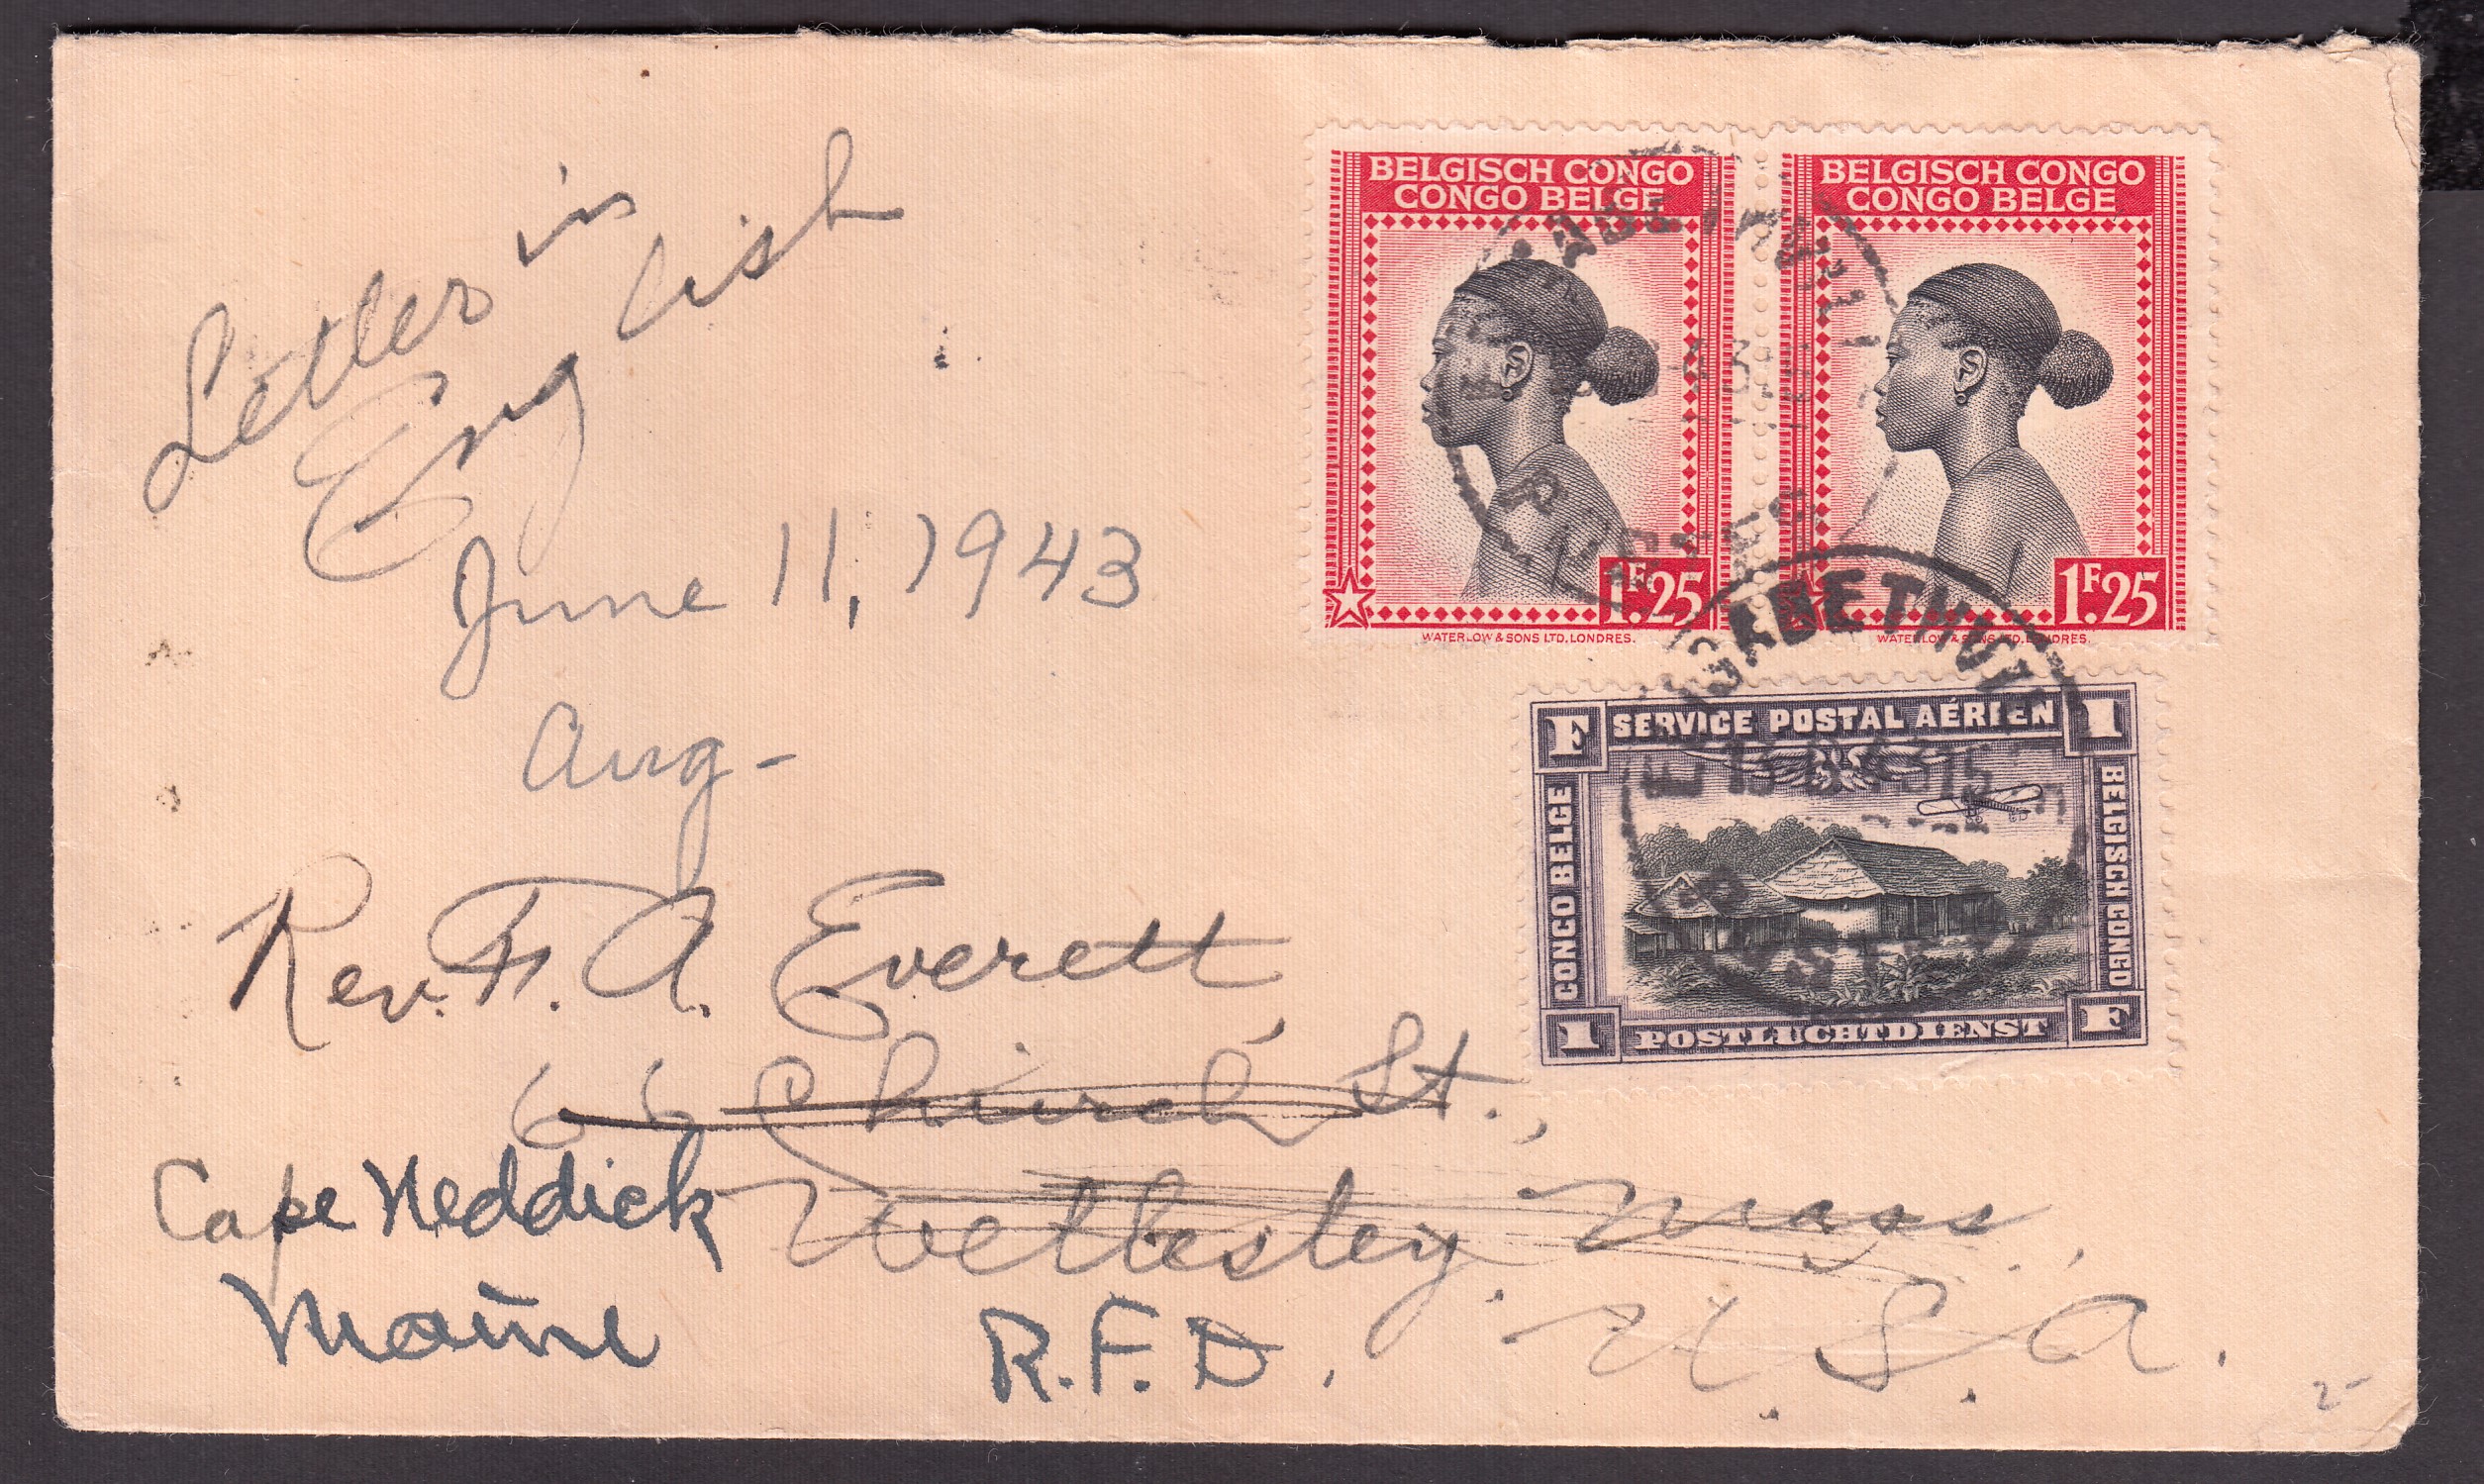 Letter in
English
June 11, 1943
Aug-
Rev. F. A. Everett,
66 Church St.,
Wellesley, Mass.,
U.S.A.
Cape Neddick
Maine
R.F.D.
BELGISCH CONGO
CONGO BELGE
1F.25
WATERLOW & SONS LTD. LONDRES.
BELGISCH CONGO
CONGO BELGE
1F.25
WATERLOW & SONS LTD. LONDRES.
F SERVICE POSTAL AÉRIEN 1
CONGO BELGE
BELGISCH CONGO
1 POSTLUCHTDIENST F
2-